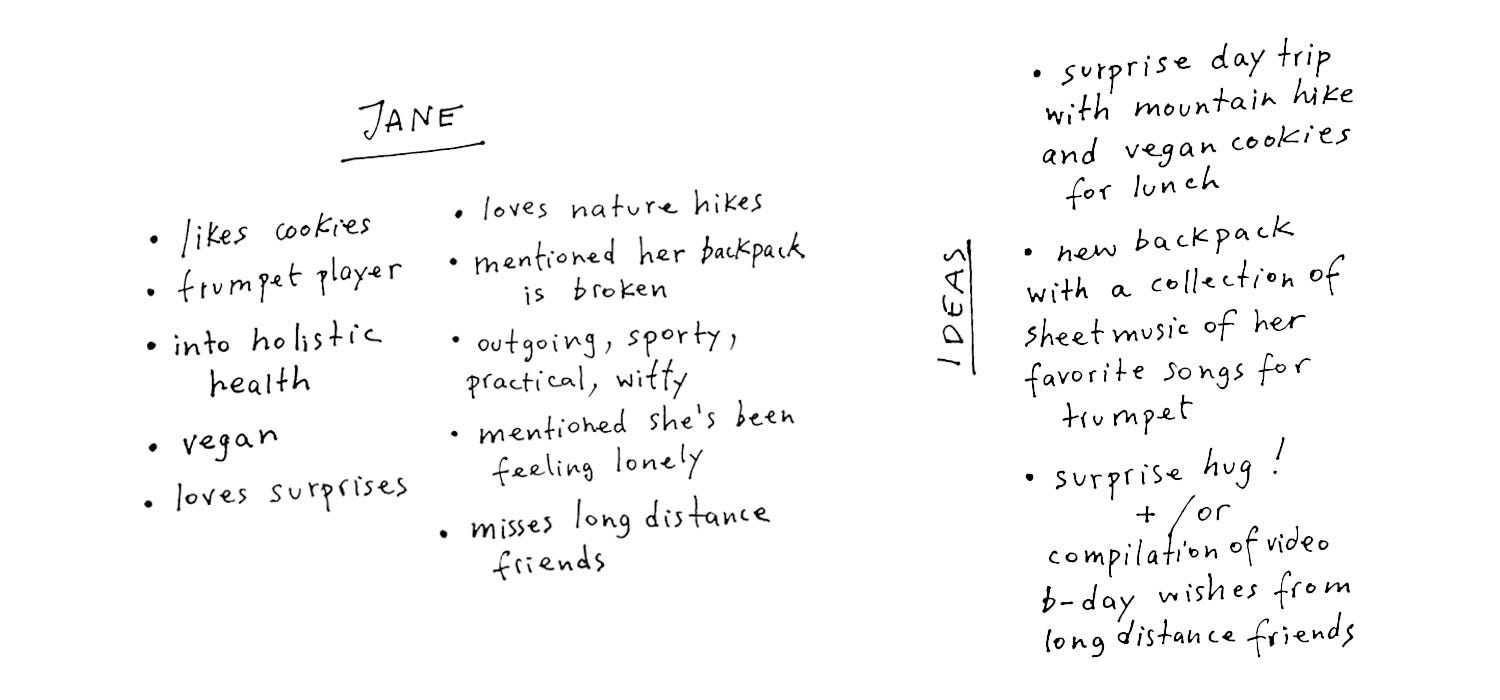 JANE
• likes cookies
• trumpet player
• into holistic
health
• vegan
• loves surprises
• loves nature hikes
• mentioned her backpack
is broken
• outgoing, sporty,
practical, witty
• mentioned she's been
feeling lonely
• misses long distance
friends
IDEAS
• surprise day trip
with mountain hike
and vegan cookies
for lunch
• new backpack
with a collection of
sheet music of her
favorite songs for
trumpet
• surprise hug!
+/or
compilation of video
b-day wishes from
long distance friends